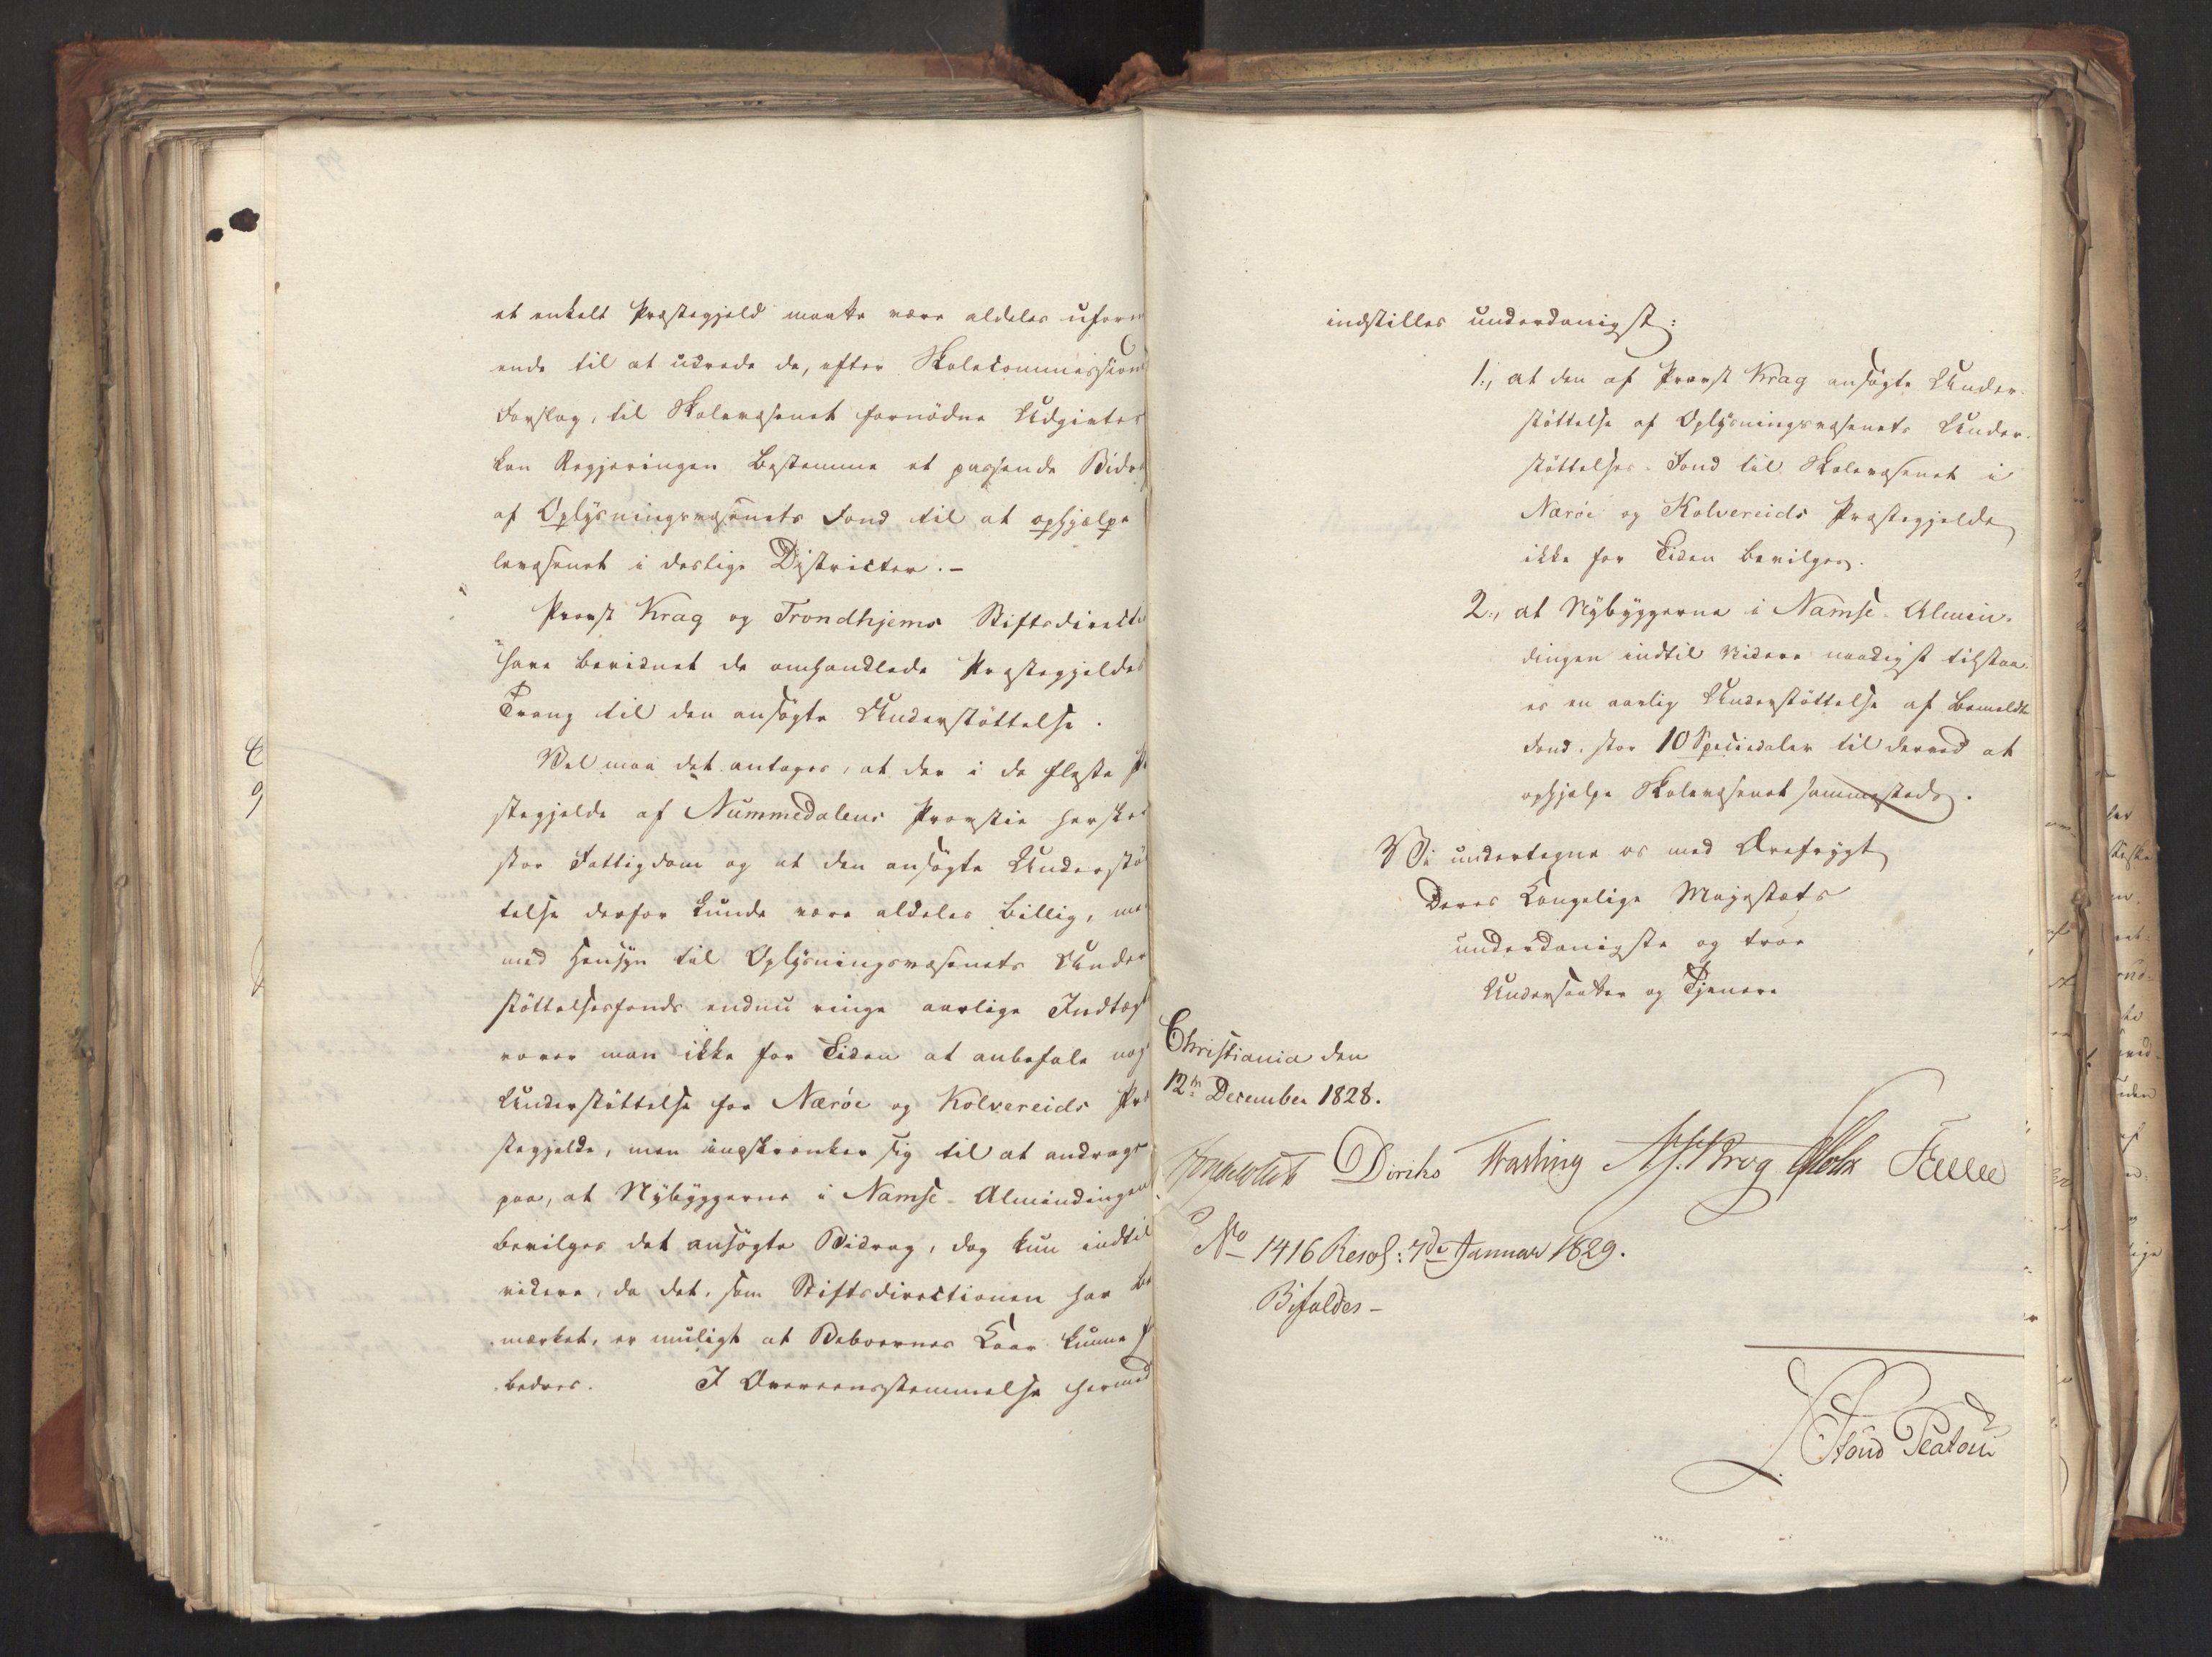 et enkelt Præstegjeld maatte være aldeles uform
ende til at udrede de, efter Skolecommissione
Forslag, til Skolevæsenet fornödne Udgivter
kan Regjeringen bestemme et passende Bidr
af Oplysningsvæsenets Fond til at ophjælpe
levæsenet i deslige Districter.-
Provst Krag og Trondhjems Stiftsdirecti
have bevidnet de omhandlede Præstegjeldes
Trang til den ansøgte Understöttelse.
Vel maa det antages, at der i de fleste Pr
stegjelde af Nummedalens Provstie hersker
stor Fattigdom og at den ansögte Understö
telse derfor kunde være aldeles billig, me
med Hensyn til Oplysningsvæsenets Under
stöttelsesfonds endnu ringe aarlige Indtægt
vover man ikke for Tiden at anbefale nog
Understöttelse for Næröe og Kolvereids Præ
stegjelde, men indskrænker sig til at andrage
paa, at Nybyggerne i Namse-Almindingen
bevilges det ansögte Bidrag, dog kun indtil
videre, da det, som Stiftsdirectionen har be
mærket, er muligt at Beboernes Kaar kunne f
bedres. I Overeensstemmelse hermed
indstilles underdanigst:
1:, at den af Provst Krag ansögte Under-
stöttelse af Oplysningsvæsenets Under-
stöttelses-Fond til Skolevæsenet i
Næröe og Kolvereids Præstegjelde
ikke for Tiden bevilges.
2:, at Nybyggerne i Namse-Almin-
dingen indtil Videre naadigst tilstaa-
es en aarlig Understöttelse af bemeldte
Fond, stor 10 Speciedaler til derved at
ophjælpe Skolevæsenet sammesteds.
Vi undertegne os med Ærefrygt
Deres Kongelige Majestæts
underdanigste og troe
Undersaatter og Tjenere
Christiania den
12te December 1828.
Diriks Fasting Krog Holst
No 1416 Resol: 7de Januar 1829.
Bifaldes-